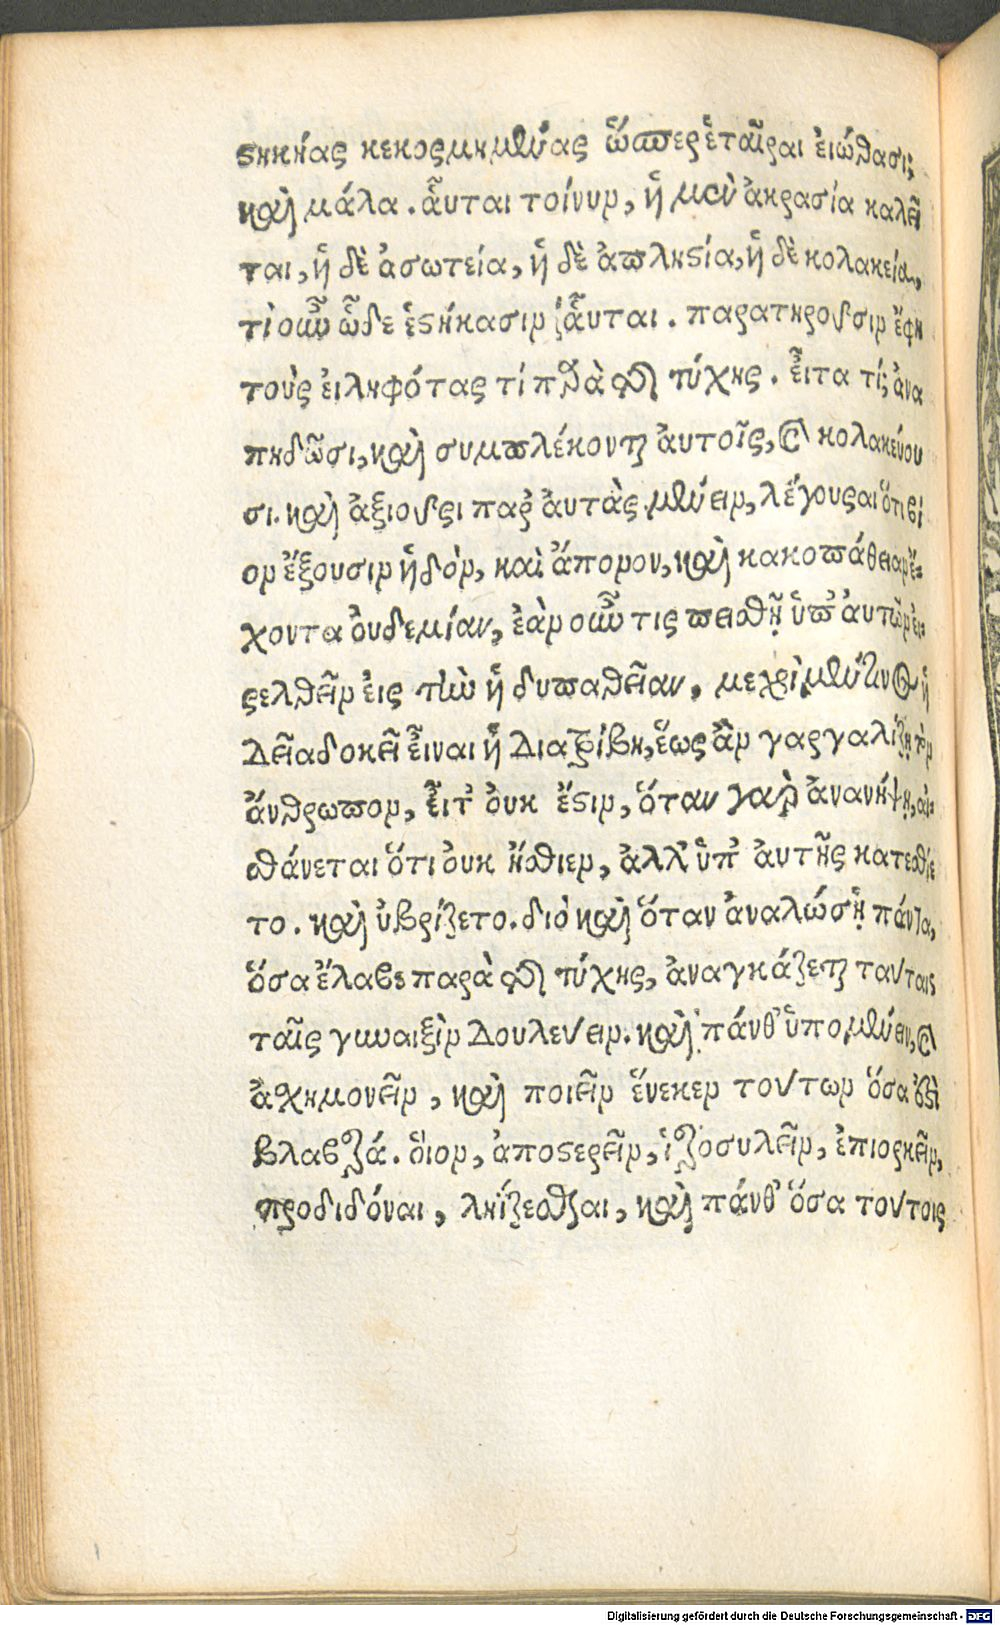 στηκήας κεκοσμημένας ὥσπερ ἑταῖραι ἐιώθασι;
καὶ μάλα. ἇυται τοίνυν, ἥ μὲν ἀκρασία καλεῖ
ται, ἥ δὲ ἀσωτεία, ἥ δὲ ἀπληστία, ἥ δὲ κολακεία,
τὶ οὖν ὧδε ἑστήκασιν ἇυται. παρατηροῦσιν ἔφη
τοὺς ἐιληφότας τί παρὰ τῆς τύχης. ἒιτα τί; ἀνα
πηδῶσι, καὶ συμπλέκονται ἀυτοῖς, καὶ κολακεύου
σι. καὶ ἀξιοῦσι παρ ἀυτὰς μένειν, λέγουσαι ὅτι βί
ον ἕξουσιν ἡδὺν, καὶ ἄπονον, καὶ κακοπάθειαν ἔ-
χοντα ὀυδεμίαν, ἐὰν οὖν τις πεισθῇ ὑπ ἀυτῶν ἐι-
σελθεῖν ἐις τὴν ἡδυπαθεῖαν, μεχρὶ μέν τινος ἡ
δεῖα δοκεῖ ἒιναι ἡ διατρίβη, ἕως ἂν γαργαλίζῃ τὸν
ἄνθρωπον, ἒιτ ὀυκ ἔστιν, ὅταν γαρ ἀνανήψῃ, ἀι-
σθάνεται ὅτι ὀυκ ἤσθιεν, ἀλλ ὑπ ἀυτῆς κατεσθίε
το. καὶ ὑβρίζετο. διὸ καὶ ὅταν ἀναλώσῃ πάντα,
ὅσα ἔλαβε παρὰ τῆς τύχης, ἀναγκάζεται ταύταις
ταῖς γυναιξὶν δουλεύειν. καὶ πάνθ ὑπομένειν, καὶ
ἀσχημονεῖν, καὶ ποιεῖν ἕνεκεν τούτων ὅσα ἐστὶ
βλαβερά. ὅιον, ἀποστερεῖν, ἱεροσυλεῖν, ἐπιορκεῖν,
προδιδόναι, ληΐζεσθαι, καὶ πάνθ ὅσα τούτοις
Digitalisierung gefördert durch die Deutsche Forschungsgemeinschaft - DFG